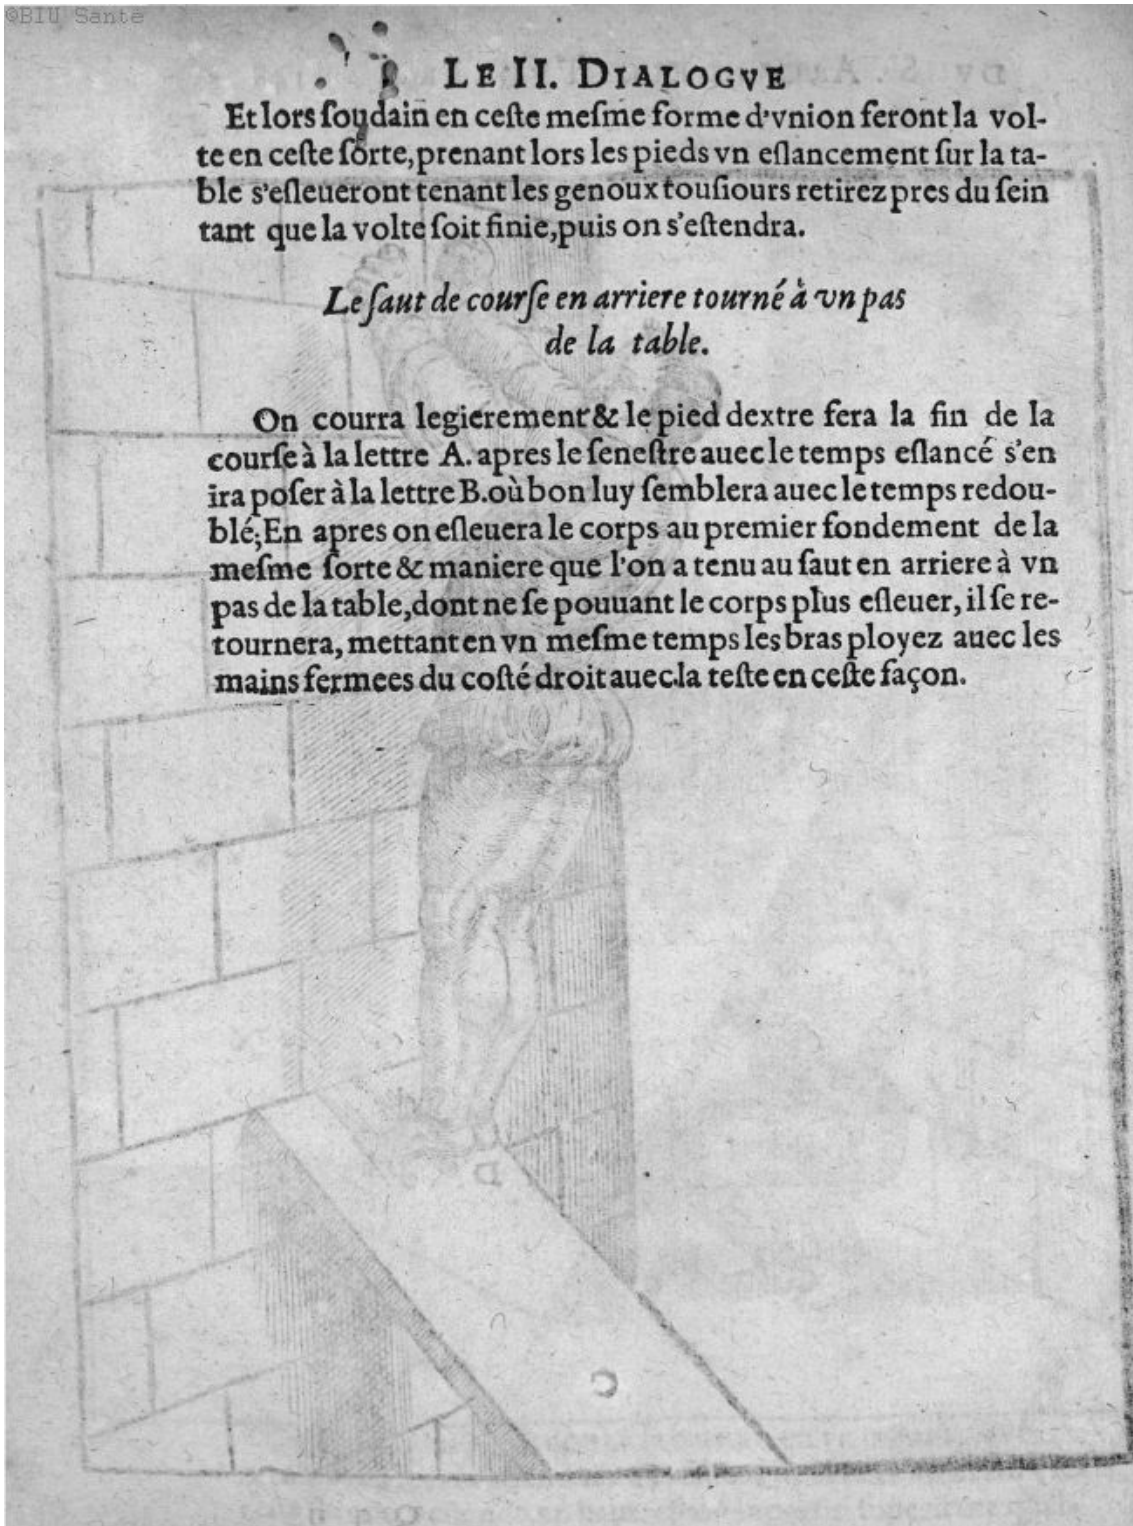 ©BIU Sante
LE II. DIALOGVE
Et lors ſoudain en ceſte meſme forme d'vnion feront la vol-
te en ceſte ſorte, prenant lors les pieds vn eſlancement ſur la ta-
ble s'eſleueront tenant les genoux touſiours retirez pres du ſein
tant que la volte ſoit finie, puis on s'eſtendra.
Le ſaut de courſe en arriere tourné à vn pas
de la table.
On courra legierement & le pied dextre fera la fin de la
courſe à la lettre A. apres le ſeneſtre auec le temps eſlancé s'en
ira poſer à la lettre B. où bon luy ſemblera auec le temps redou-
blé; En apres on eſleuera le corps au premier fondement de la
meſme ſorte & maniere que l'on a tenu au ſaut en arriere à vn
pas de la table, dont ne ſe pouuant le corps plus eſleuer, il ſe re-
tournera, mettant en vn meſme temps les bras ployez auec les
mains fermees du coſté droit auec la teſte en ceſte façon.
D
C